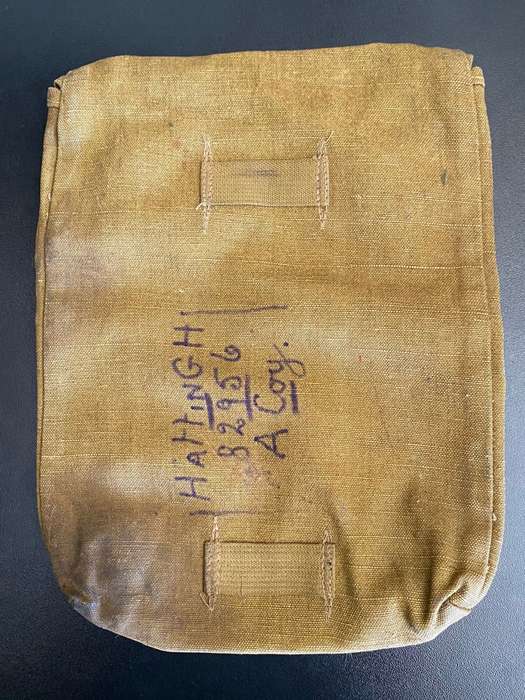 HATTINGH
82956
A Coy.